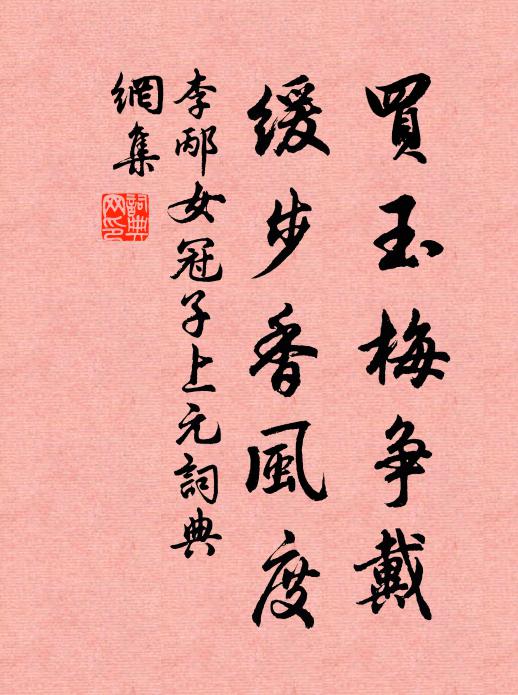 買玉梅争戴
緩步香風度
李邴女冠子上元詞典
網集
詞典
网印